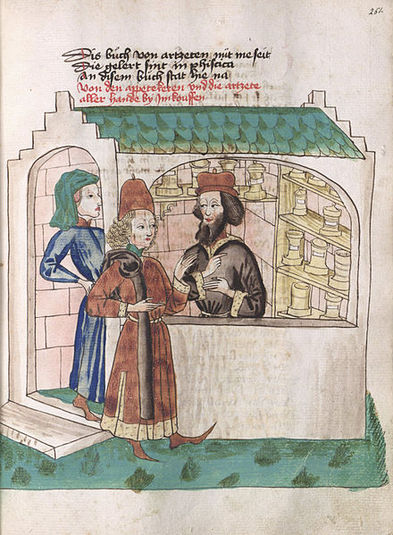 Dis buch von artzeten nüt me seit
Die gelert sint in phisica
An disem buch stat hie na
Von den appoteketen vnd die artzete
aller hande by Im kouffen